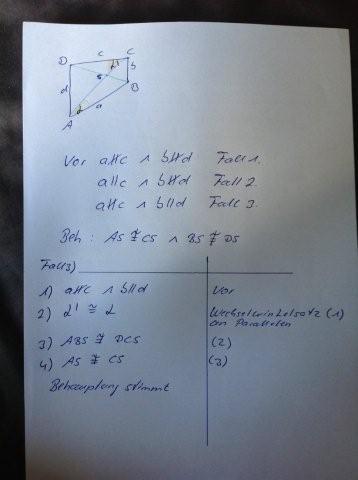 D c C
s α'
d b
B
α a
A
Vor a∦c ∧ b∦d Fall 1.
a∥c ∧ b∦d Fall 2.
a∦c ∧ b∥d Fall 3.
Beh: AS ≇ CS ∧ BS ≇ DS
Fall 3)
1) a∦c ∧ b∥d Vor
2) α' ≅ α Wechselwinkelsatz (1)
an Parallelen
3) ABS ≇ DCS (2)
4) AS ≇ CS (3)
Behauptung stimmt